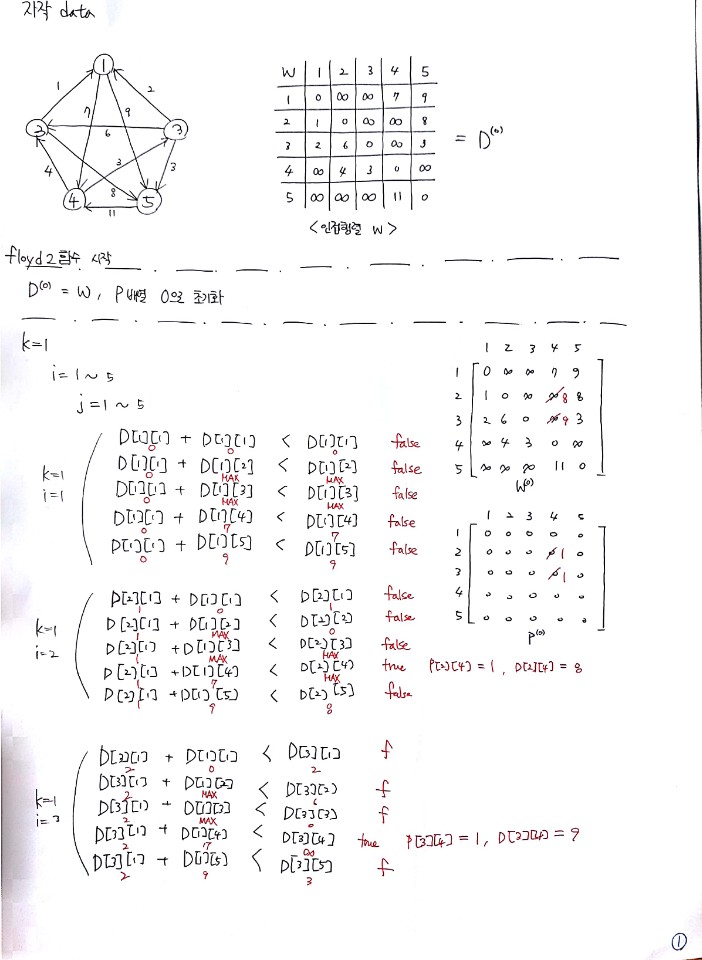 자작 data
1
1 2
7 9
2 6 3
4 3 8 3
4 11 5
W 1 2 3 4 5
1 0 ∞ ∞ 7 9
2 1 0 ∞ ∞ 8
3 2 6 0 ∞ 3
4 ∞ 4 3 0 ∞
5 ∞ ∞ ∞ 11 0
= D⁽⁰⁾
<인접행렬 W>
floyd2 함수 시작
D⁽⁰⁾ = W, P배열 0으로 초기화
k=1
i = 1 ~ 5
j = 1 ~ 5
1 2 3 4 5
1 0 ∞ ∞ 7 9
2 1 0 ∞ ∞ 8 8
3 2 6 0 ∞ 9 3
4 ∞ 4 3 0 ∞
5 ∞ ∞ ∞ 11 0
W⁽⁰⁾
1 2 3 4 5
1 0 0 0 0 0
2 0 0 0 0 1 0
3 0 0 0 0 1 0
4 0 0 0 0 0
5 0 0 0 0 0
P⁽⁰⁾
k=1
i=1
D[1][1] + D[1][1] < D[1][1] false
0 0
D[1][1] + D[1][2] < D[1][2] false
0 MAX MAX
D[1][1] + D[1][3] < D[1][3] false
0 MAX MAX
D[1][1] + D[1][4] < D[1][4] false
0 7 7
D[1][1] + D[1][5] < D[1][5] false
0 9 9
k=1
i=2
D[2][1] + D[1][1] < D[2][1] false
1 0 1
D[2][1] + D[1][2] < D[2][2] false
1 MAX 0
D[2][1] + D[1][3] < D[2][3] false
1 MAX MAX
D[2][1] + D[1][4] < D[2][4] true P[2][4] = 1, D[2][4] = 8
1 7 MAX
D[2][1] + D[1][5] < D[2][5] false
1 9 8
k=1
i=3
D[3][1] + D[1][1] < D[3][1] f
2 0 2
D[3][1] + D[1][2] < D[3][2] f
2 MAX 6
D[3][1] + D[1][3] < D[3][3] f
2 MAX 0
D[3][1] + D[1][4] < D[3][4] true P[3][4] = 1, D[3][4] = 9
2 7 ∞
D[3][1] + D[1][5] < D[3][5] f
2 9 3
①